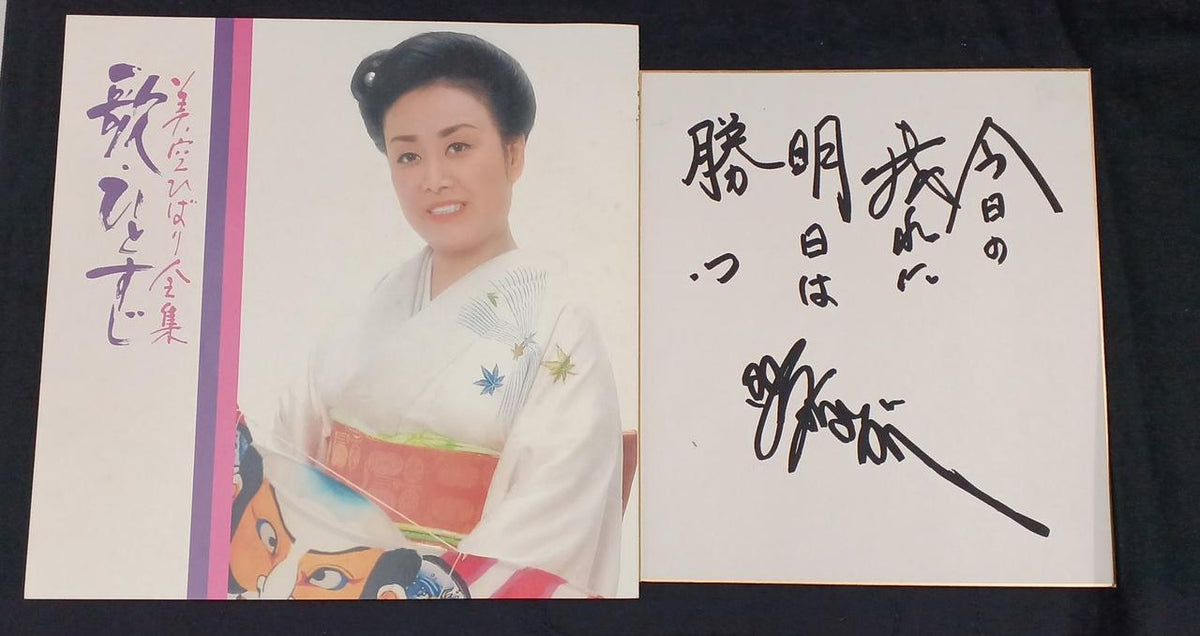 美空ひばり全集
歌・ひとすじ
今日の
我れに
明日は
勝つ